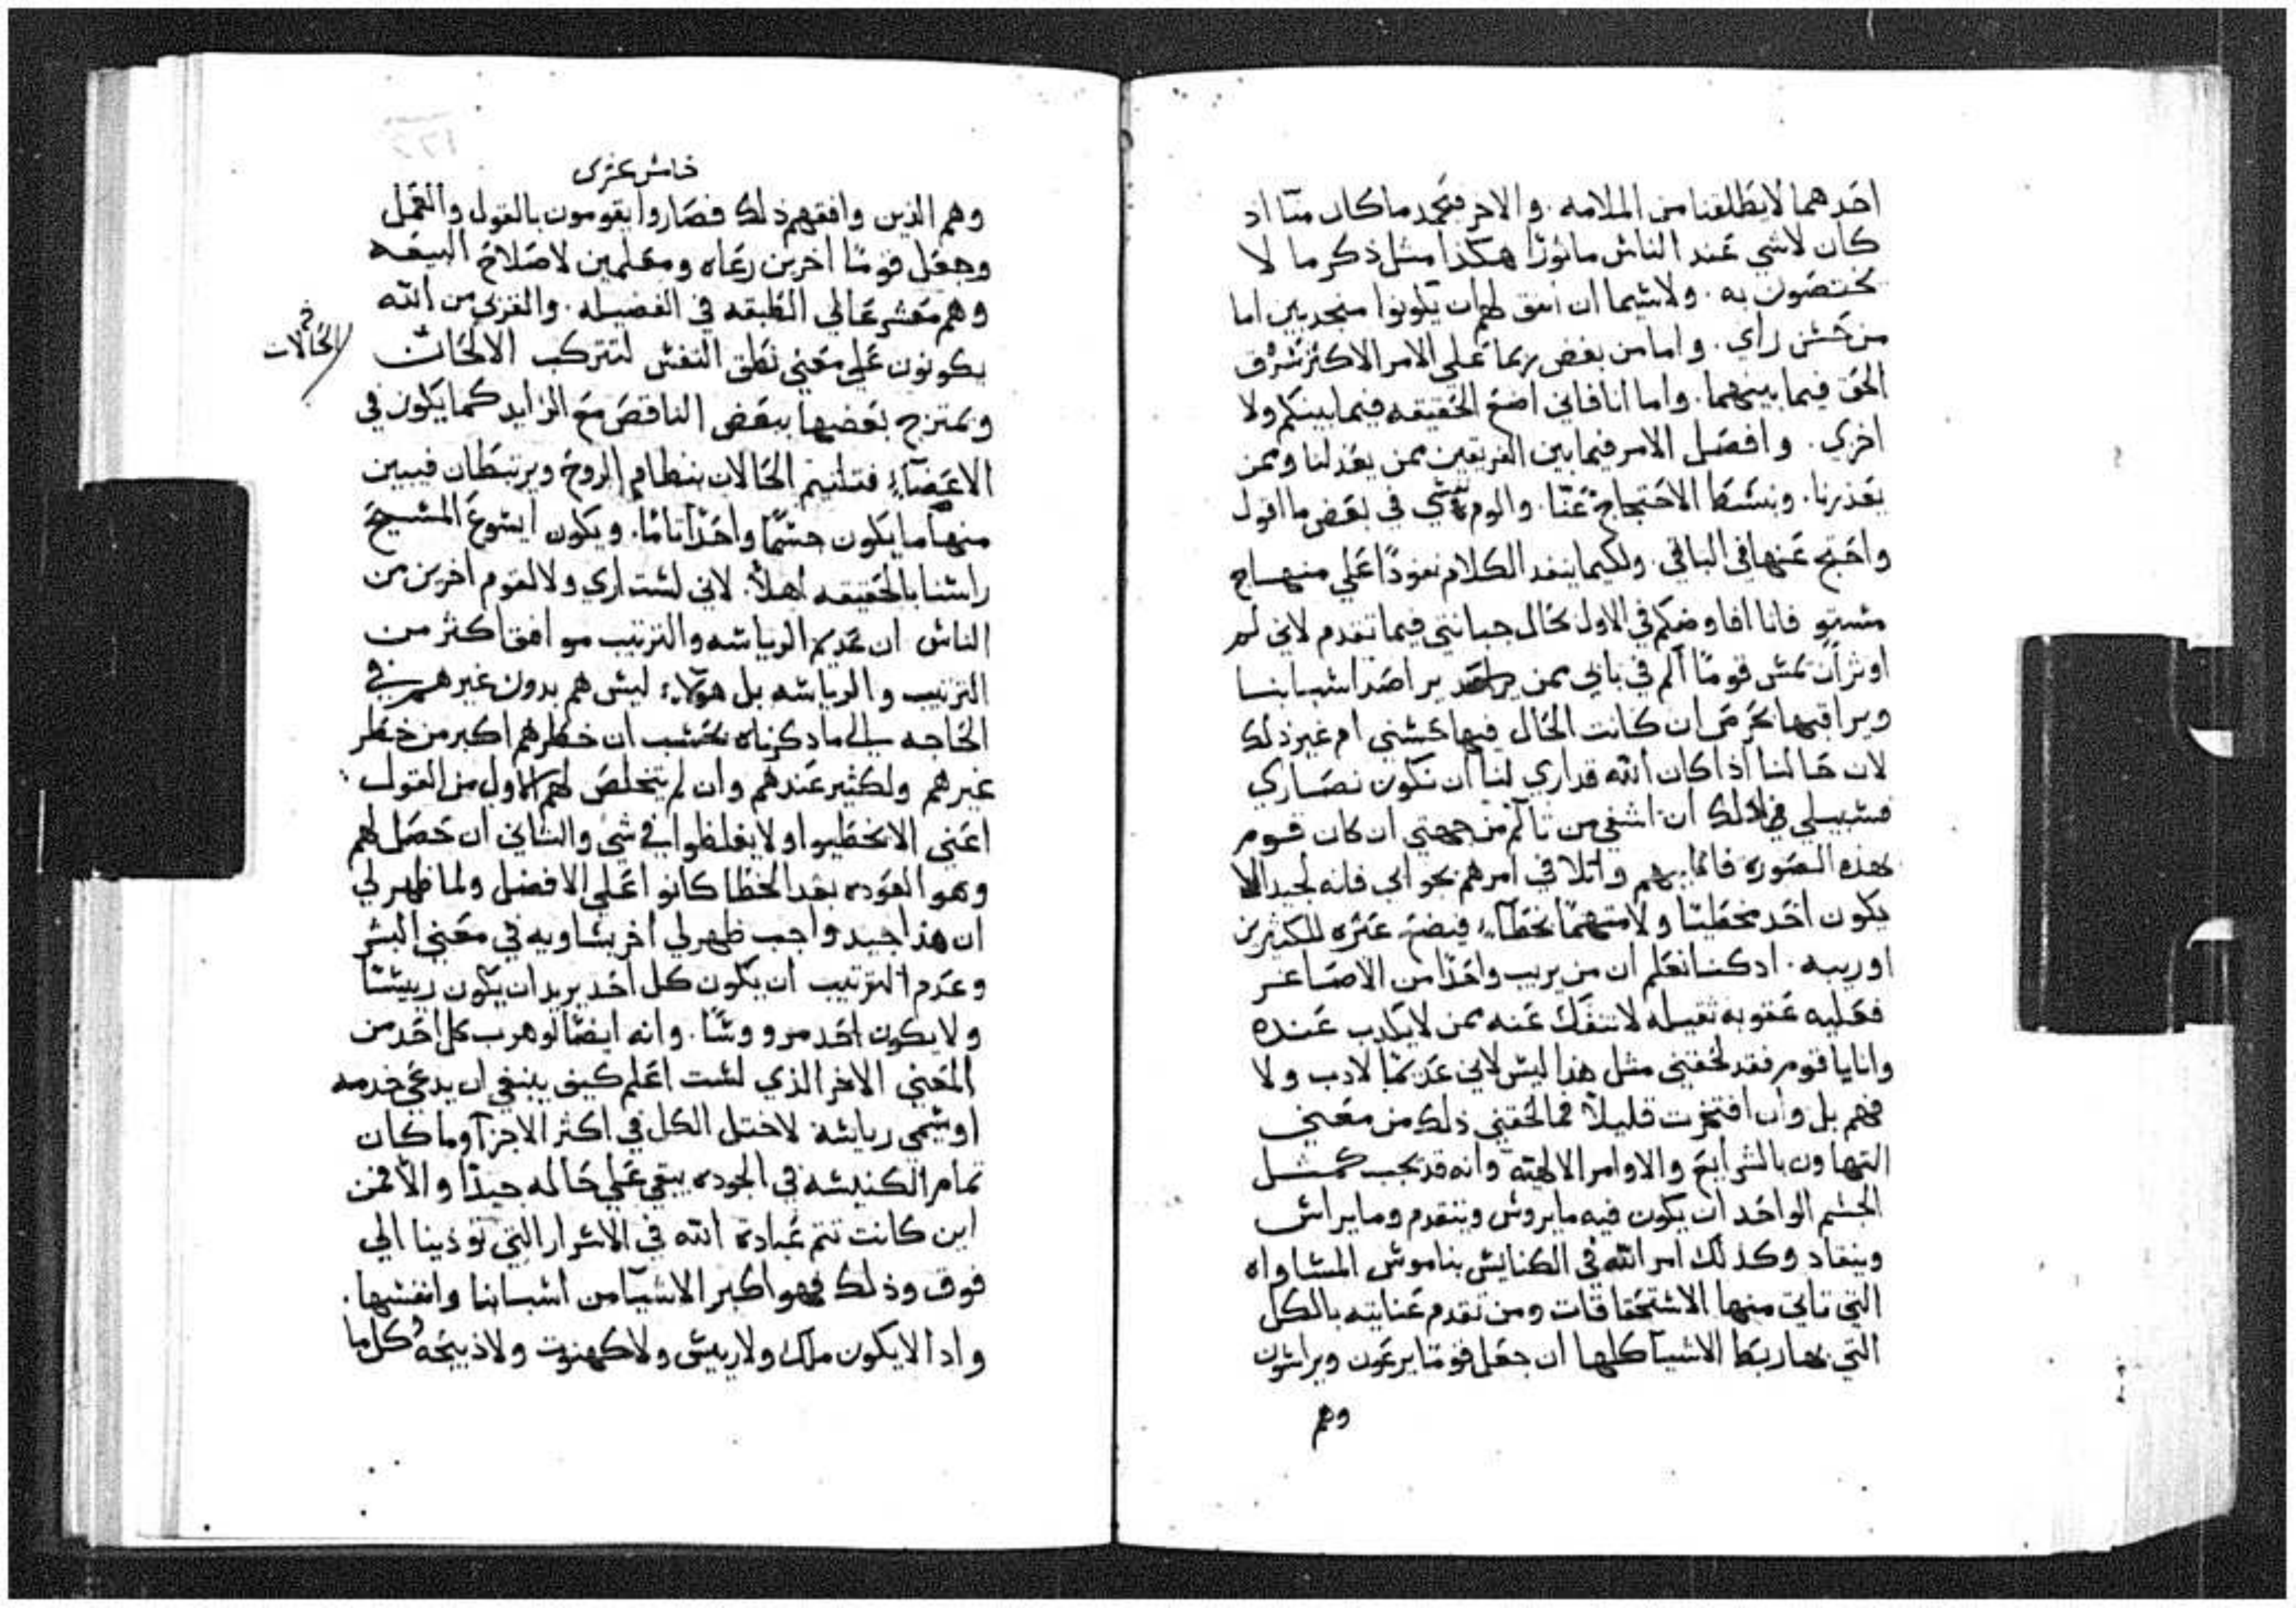 احدهما لا يطلقنا من الملامه. والاخر فيحمد ما كان منا اذ
كان لاشي عند الناس ماثورًا هكذا مثل ذكر ما لا
يختصون به. ولاسيما ان اتفق لهم ان يكونوا منجذبين اما
من حسن راي. واما من بغض ربما علي الامر الاكثر تسرق
الحق فيما بينهما. واما انا فاني اضع الحقيقه فيما بينكم ولا
اخزي. وافصل الامر فيما بين الفريقين ممن يعذلنا وممن
يعذرنا. وينشط الاحتجاج عنا. والوم نفسي في بعض ما اقول
واحتج عنها في الباقي. ولكيما ينفد الكلام نفوذًا علي منهاج
مستوٍ فانا افاوضكم في الاول بحال جبانتي فيما تقدم لاني لم
اوثر ان يمس قومًا الم في بابي ممن يراصد اسبابنا
ويراقبها بحرص ان كانت الحال فيها حسني ام غير ذلك
لان حالنا اذا كان الله قد اري لنا ان نكون نصاري
فسبيلي في ذلك ان اشفي من تالم من جهتي ان كان قوم
بهذه الصوره فاتلافي امرهم بجوابي فانه لجيد الا
يكون احد مخطيًا ولا متهمًا بخطاء فيضع عثره للكثيرين
او ريبه. اد كنا نعلم ان من يريب واحدًا من الاصاغر
فعليه عقوبه ثقيله لا تنفك عنه ممن لا يكدب عنده
وانا يا قوم فقد لحقني مثل هذا ليس لاني عديمًا لادب ولا
فهم بل وان افتخرت قليلاً فما لحقني ذلك من معني
التهاون بالشرايع والاوامر الالهيه وانه قد يجب كمثل
الجسم الواحد ان يكون فيه ما يروس ويتقدم وما يراس
وينقاد وكذلك امر الله في الكنايس بناموس المساواه
التي تاتي منها الاستحقاقات ومن تقدم عنايته بالكل
التي بها ربط الاشيا كلها ان جعل قومًا يرعون ويراسون
وهم
خامس عشري
وهم الذين وافقهم ذلك فصاروا يقومون بالقول والعمل
وجعل قومًا اخرين رعاه ومعلمين لاصلاح البيعه
وهم معشر عالي الطبقه في الفضيله. والقربي من الله
يكونون علي معني نطق النفس لتتركب الالحان
الحالات
وتمتزج بعضها ببعض الناقص مع الزايد كما يكون في
الاعضاء فتلتيم الحالات بنظام الروح ويرتبطان فيبين
منها ما يكون جسمًا واحدًا تامًا. ويكون ايسوع المسيح
راسنا بالحقيقه اهلاً. لاني لست اري ولا لقوم اخرين من
الناس ان عديم الرياسه والترتيب موافق اكثر من
الترتيب والرياسه بل هولاء ليس هم بدون غيرهم في
الحاجه الي ما ذكرناه بحسب ان خطرهم اكبر من خطر
غيرهم ولكثير عندهم وان لم يتخلص لهم الاول من القول
اعني الا يخطيوا ولا يغلظوا في شي والثاني ان حصل لهم
وهو العوده بعد الخطا كانوا علي الافضل ولما ظهر لي
ان هذا جيد واجب ظهر لي اخر يساويه في معني الشر
وعدم الترتيب ان يكون كل احد يريد ان يكون رييسًا
ولا يكون احد مرووسًا. وانه ايضًا لو هرب كل احد من
المعني الاخر الذي لست اعلم كيف ينبغي ان يدعي خدمه
او يسمي رياسة لاختل الكل في اكثر الاجزا وما كان
تمام الكنيسه في الجوده يبقي علي حاله جيدًا والا فمن
اين كانت تتم عبادة الله في الاسرار التي تودينا الي
فوق وذلك فهو اكبر الاشيا من اسبابنا وانفسها.
واد الا يكون ملك ولا رييس ولا كهنوت ولا ذبيحه وكل ما